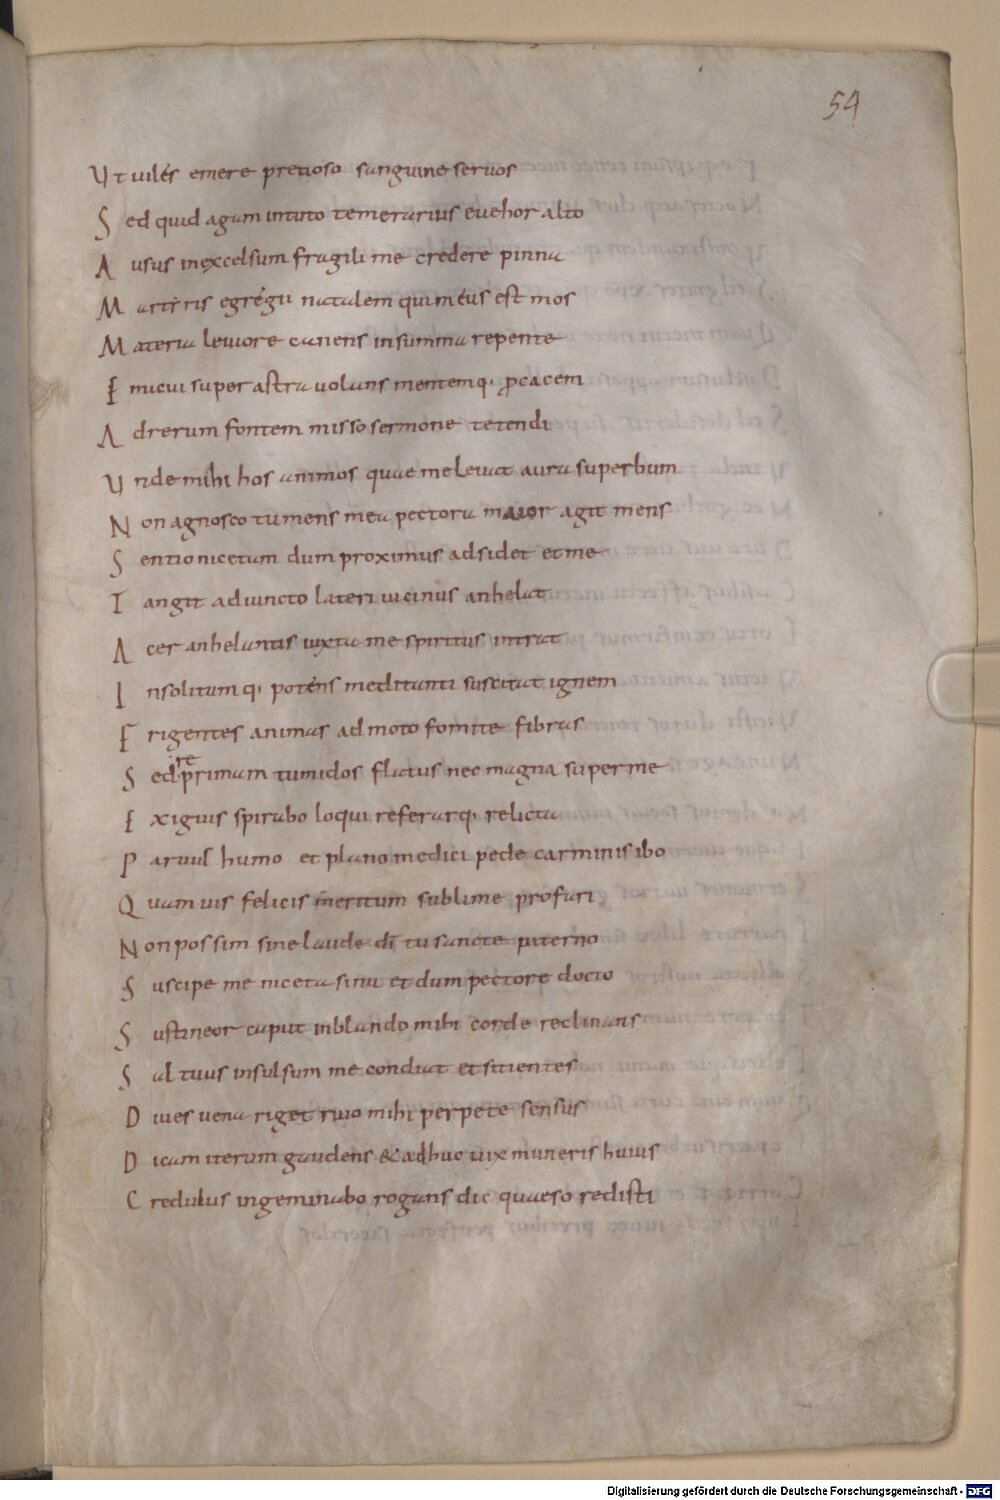 54
Ut uilés emere pretioso sanguine seruos
Sed quid agam intuto temerarius euehor alto
Ausus inexcelsum fragili me credere pinna
Martiris egrégii natalem qui méus est mos
Materia leuiore canens insumma repente
Emicui super astra uolans mentemq; ꝓcacem
Adrerum fontem misso sermone tetendi
Unde mihi hos animos quae me leuat aura superbum
Non agnosco tumens mea pectora maior agit mens
Sentio nicetam dum proximus adsidet et me
Tangit adiuncto lateri uicinus anhelat
Acer anhelantis iuxta me spiritus intrat
Insolitumq; poténs meditanti suscitat ignem
Erigentes animas admoto fomite fibras
Sed reprimam tumidos flatus nec magna super me
Exiguis spirabo loqui referarq; relicta
Paruus humo et plano medici pede carminis ibo
Quamuis felicis meritum sublime profari
Non possim sine laude dī tu sancte paterno
Suscipe me niceta sinu et dum pectore docto
Sustineor caput inblando mihi corde reclinans
Sal tuus insulsum me condiat et sitientes
Diues uena riget riuo mihi perpete sensus
Dicam iterum gaudens & adhuc uix muneris huius
Credulus ingeminabo rogans dic quaeso redisti
Digitalisierung gefördert durch die Deutsche Forschungsgemeinschaft - DFG